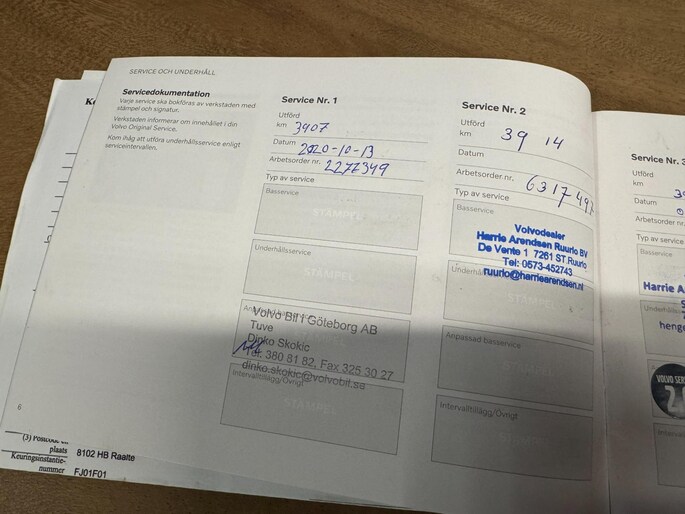 SERVICE OCH UNDERHÅLL
Servicedokumentation
Varje service ska bokföras av verkstaden med
stämpel och signatur.
Verkstaden informerar om innehållet i din
Volvo Original Service.
Kom ihåg att utföra underhållsservice enligt
serviceintervallen.
6
Service Nr. 1
Utförd
km 3907
Datum 2020-10-13
Arbetsorder nr. 2277349
Typ av service
Basservice
STÄMPEL
Underhållsservice
STÄMPEL
Anpassad basservice
Volvo Bil i Göteborg AB
Tuve
Dinko Skokic
Tel. 380 81 82, Fax 325 30 27
dinko.skokic@volvobil.se
Intervalltillägg/Övrigt
STÄMPEL
Service Nr. 2
Utförd
km 39 14
Datum
Arbetsorder nr.
Typ av service
Basservice
Volvodealer
Harrie Arendsen Ruurlo BV
De Vente 1 7261 ST Ruurlo
Tel: 0573-452743
ruurlo@harriearendsen.nl
Anpassad basservice
Intervalltillägg/Övrigt
Service Nr. 3
Utförd
km
Datum
Arbetsorder nr
Typ av service
Harrie A
VOLVO SER
plaats 8102 HB Raalte
Keuringsinstantie-
nummer FJ01F01